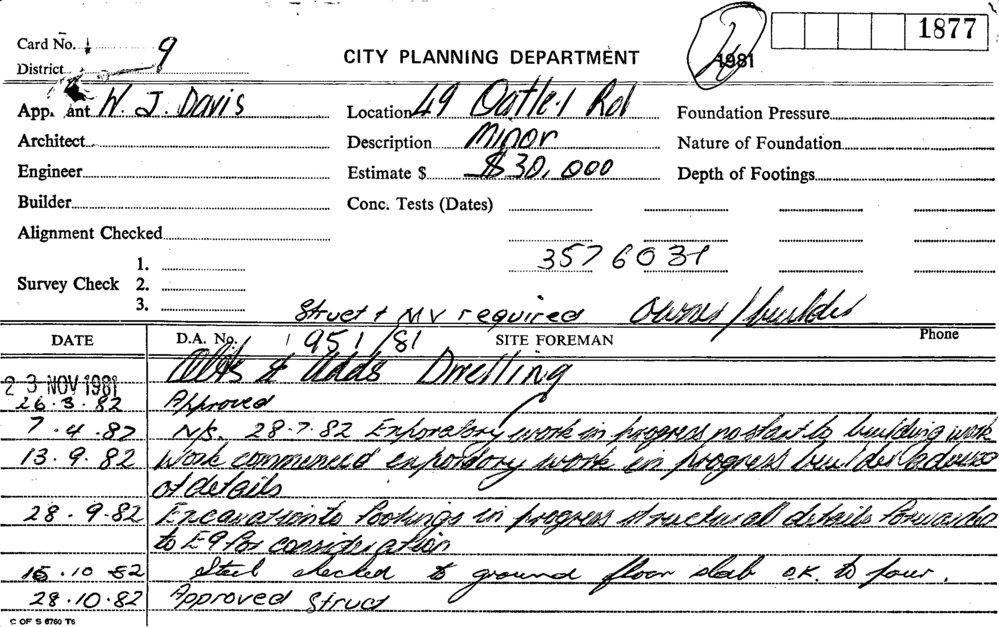 1877
Card No. 9
1981
CITY PLANNING DEPARTMENT
District
Applicant W. J. Davis
Location 49 Oatley Rd
Foundation Pressure
Architect
Description Minor
Nature of Foundation
Engineer
Estimate $ $30,000
Depth of Footings
Builder
Conc. Tests (Dates)
Alignment Checked
3576031
1.
Survey Check 2.
3.
Struct & MV required Owner/builder
DATE D.A. No. 951/81 SITE FOREMAN Phone
Alts & Adds Dwelling
23 NOV 1981
26.3.82 Approved
7.4.82 N/S. 28.7.82 Exploratory work in progress no start to building work
13.9.82 Work commenced exporatory work in progress builder advised
of details
28.9.82 Excavation to footings in progress structural details forwarded
to E9 for consideration
15.10.82 Steel checked to ground floor slab O.K. to pour.
28.10.82 Approved Struct
C OF S 6760 T6